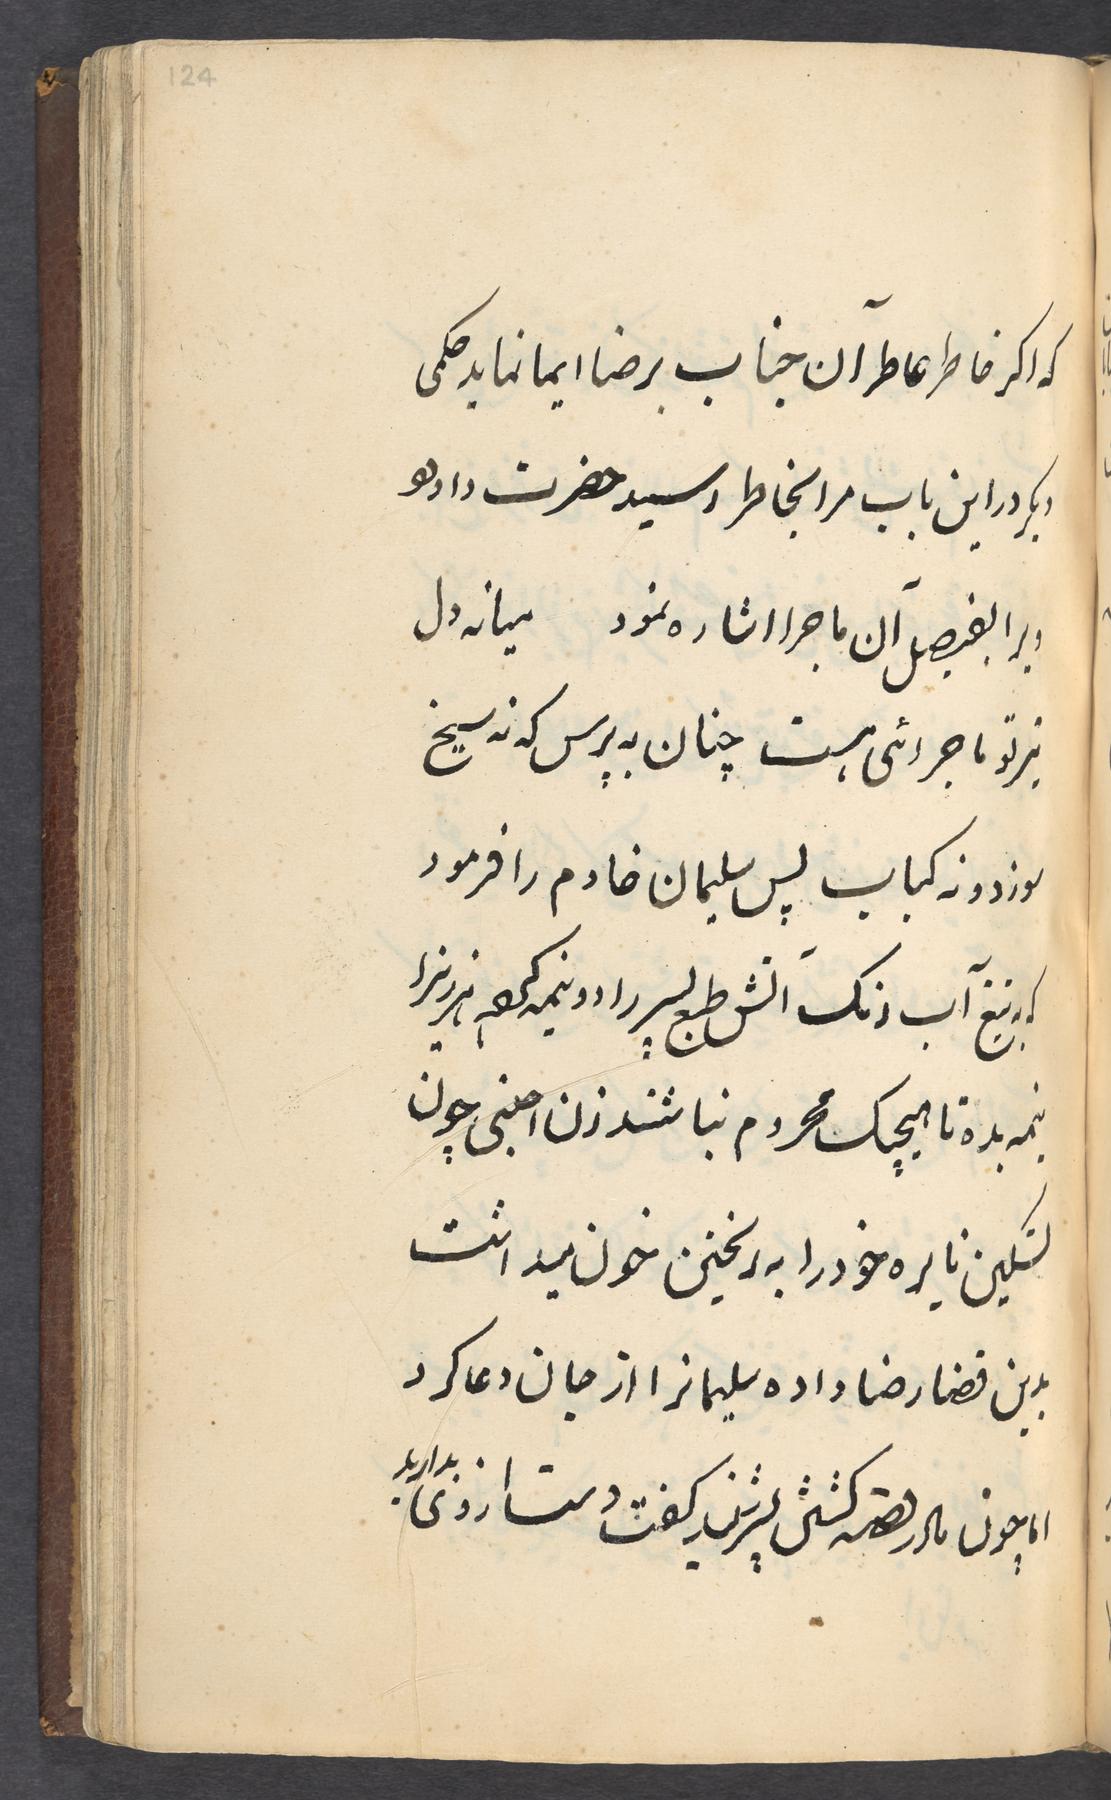 124
که اکر خاطر عاطر آن جناب برضا ایما نماید حکمی
دیکر در این باب مرا بخاطر رسید حضرت داود
ویرا بفیصل آن ماجرا اشاره نمود میانه دل
نیز تو ماجرائی هست چنان به پرس که نه سیخ
سوزد و نه کباب پس سلیمان خادم را فرمود
که به تیغ آب رنک آتش طبع پسر را دو نیمه کن هر زنرا
نیمه بده تا هیچیک محروم نباشند زن اجنبی چون
تسکین نایره خود را به ریختن خون میدانست
بدین قضا رضا داده سلیمانرا از جان دعا کرد
اما چون مادر کشش پسر کفت دست از وی بدارید